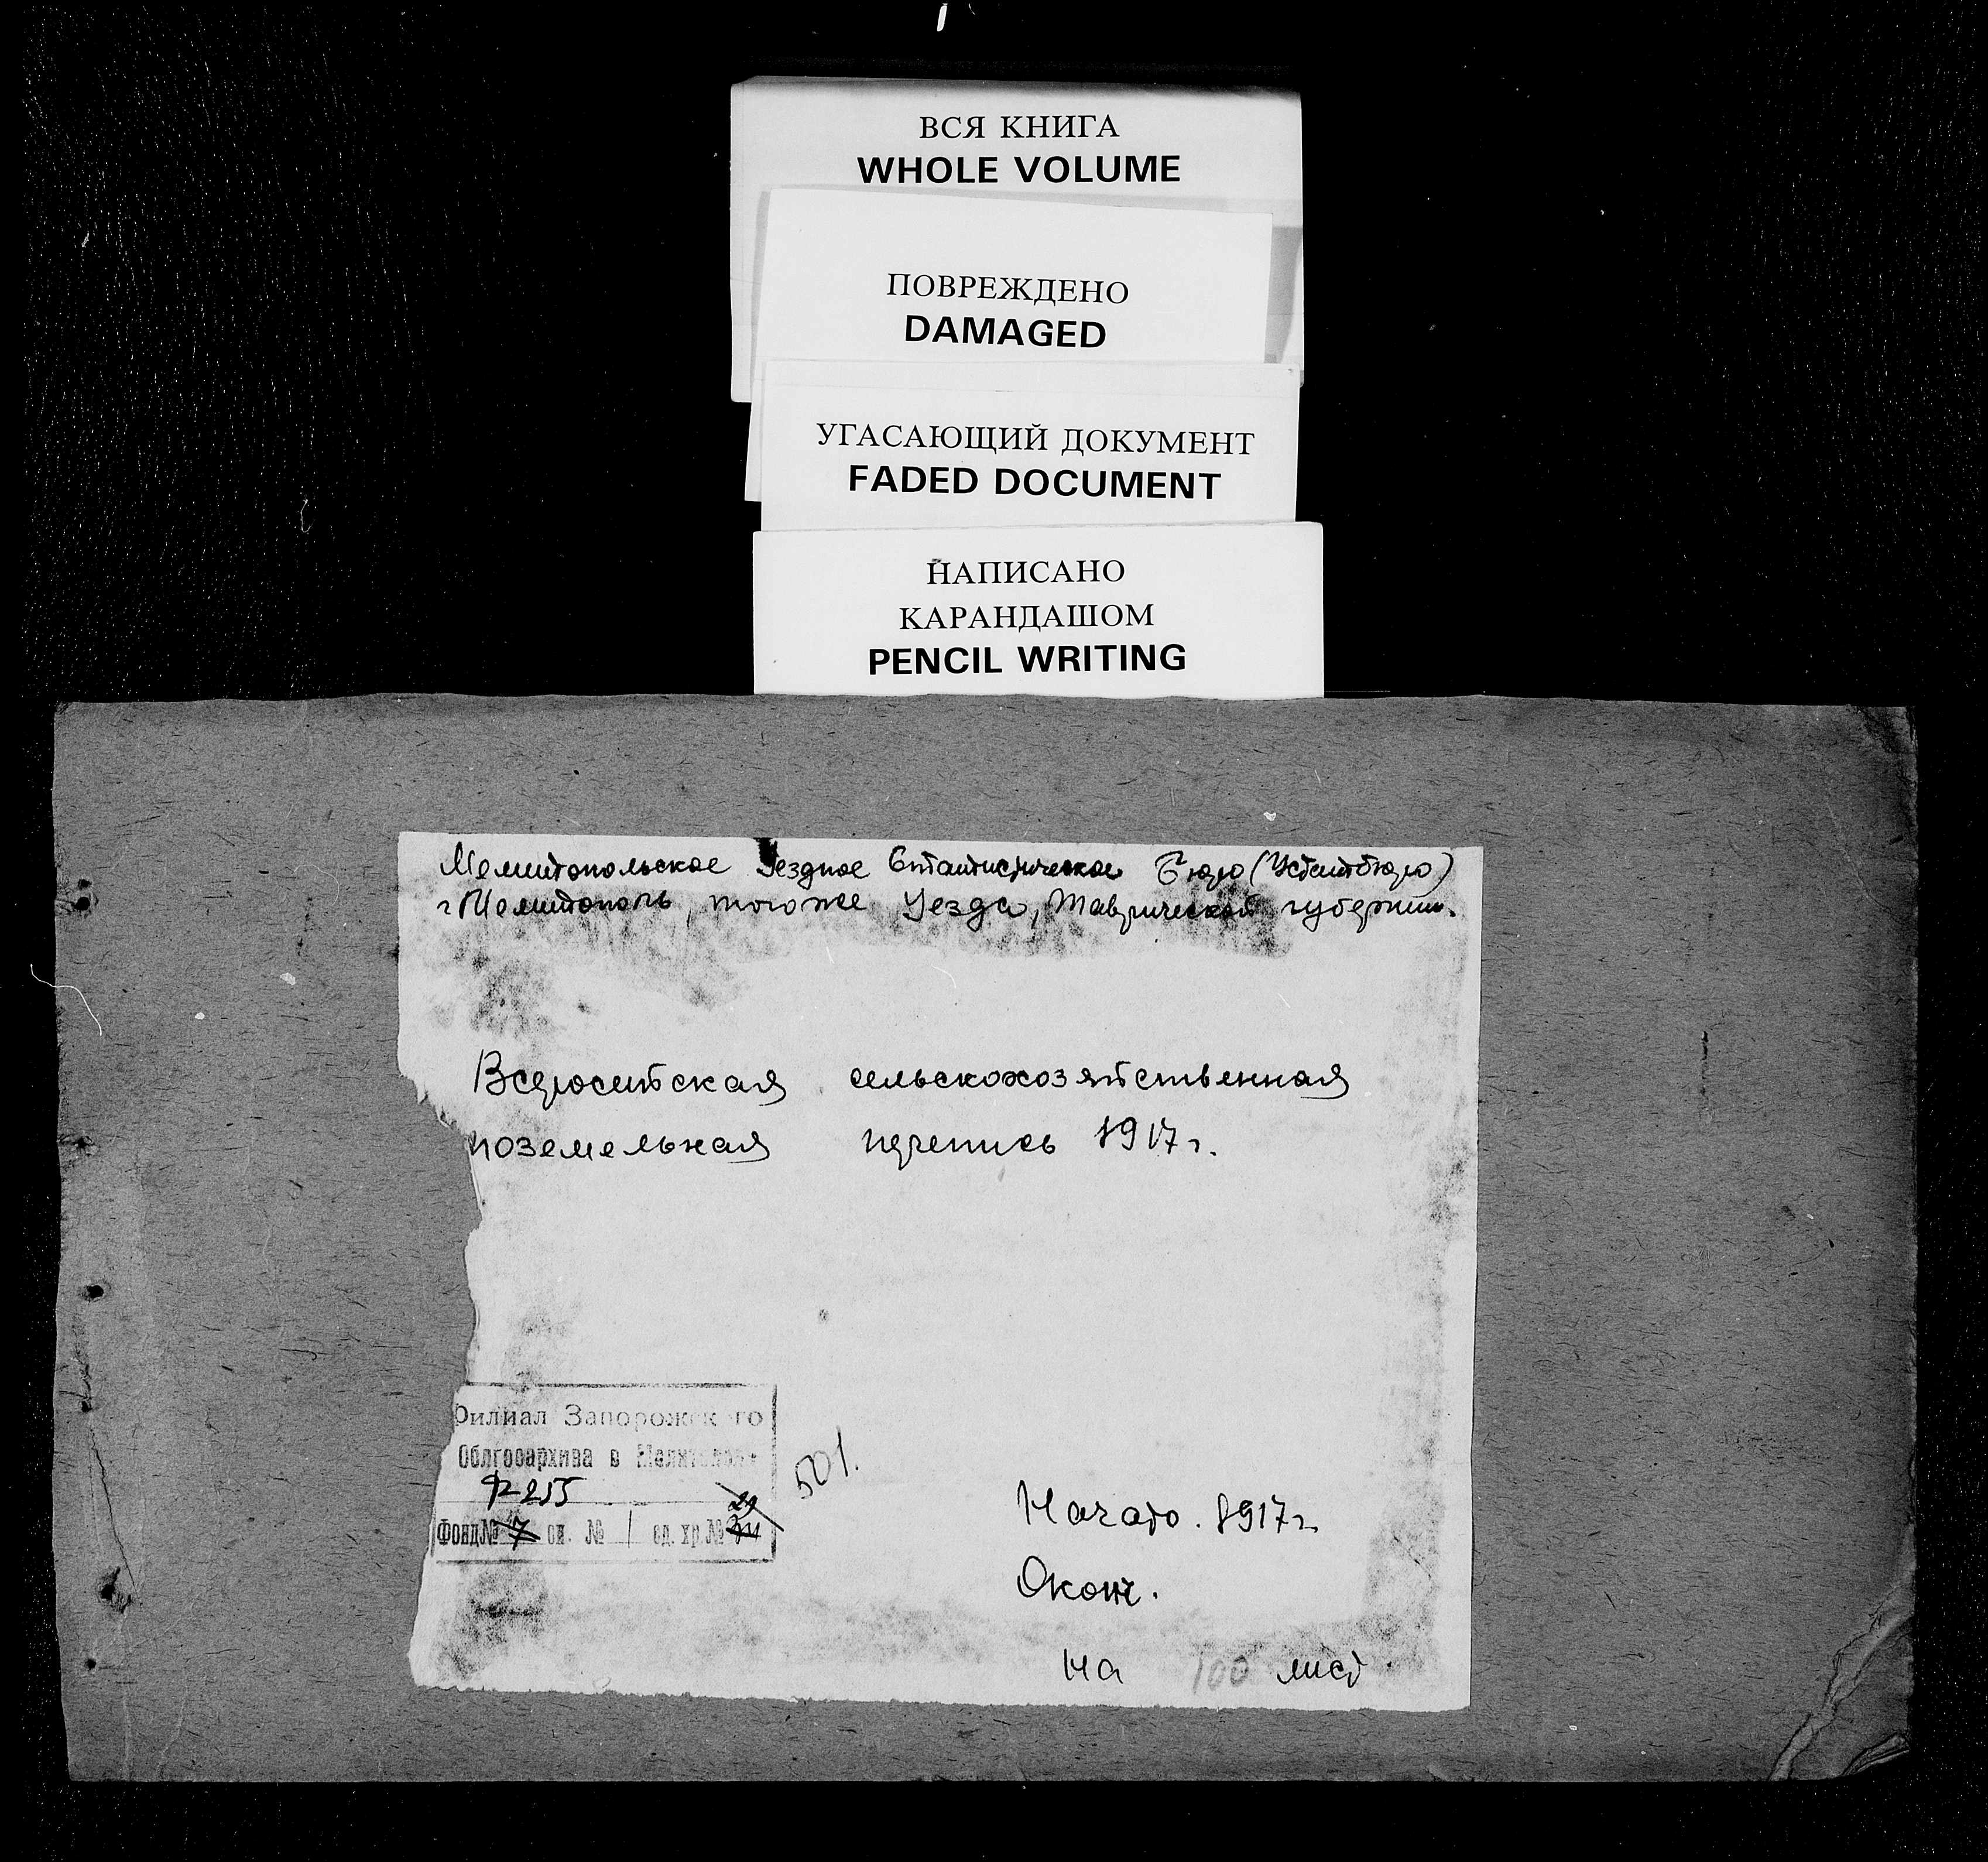 ВСЯ КНИГА
WHOLE VOLUME
ПОВРЕЖДЕНО
DAMAGED
УГАСАЮЩИЙ ДОКУМЕНТ
FADED DOCUMENT
НАПИСАНО
КАРАНДАШОМ
PENCIL WRITING
Мелитопольское Уездное Статистическое Бюро (Устатбюро)
г Мелитополь, того же Уезда, Таврической губернии.
Всероссийская сельскохозяйственная
поземельная перепись 1917 г.
Филиал Запорожского
Облгосархива в Мелитополе
Р-255
Фонд № 7 оп. № 1 ед. хр. №
501.
Начато. 1917 г.
Оконч.
На 100 лист.